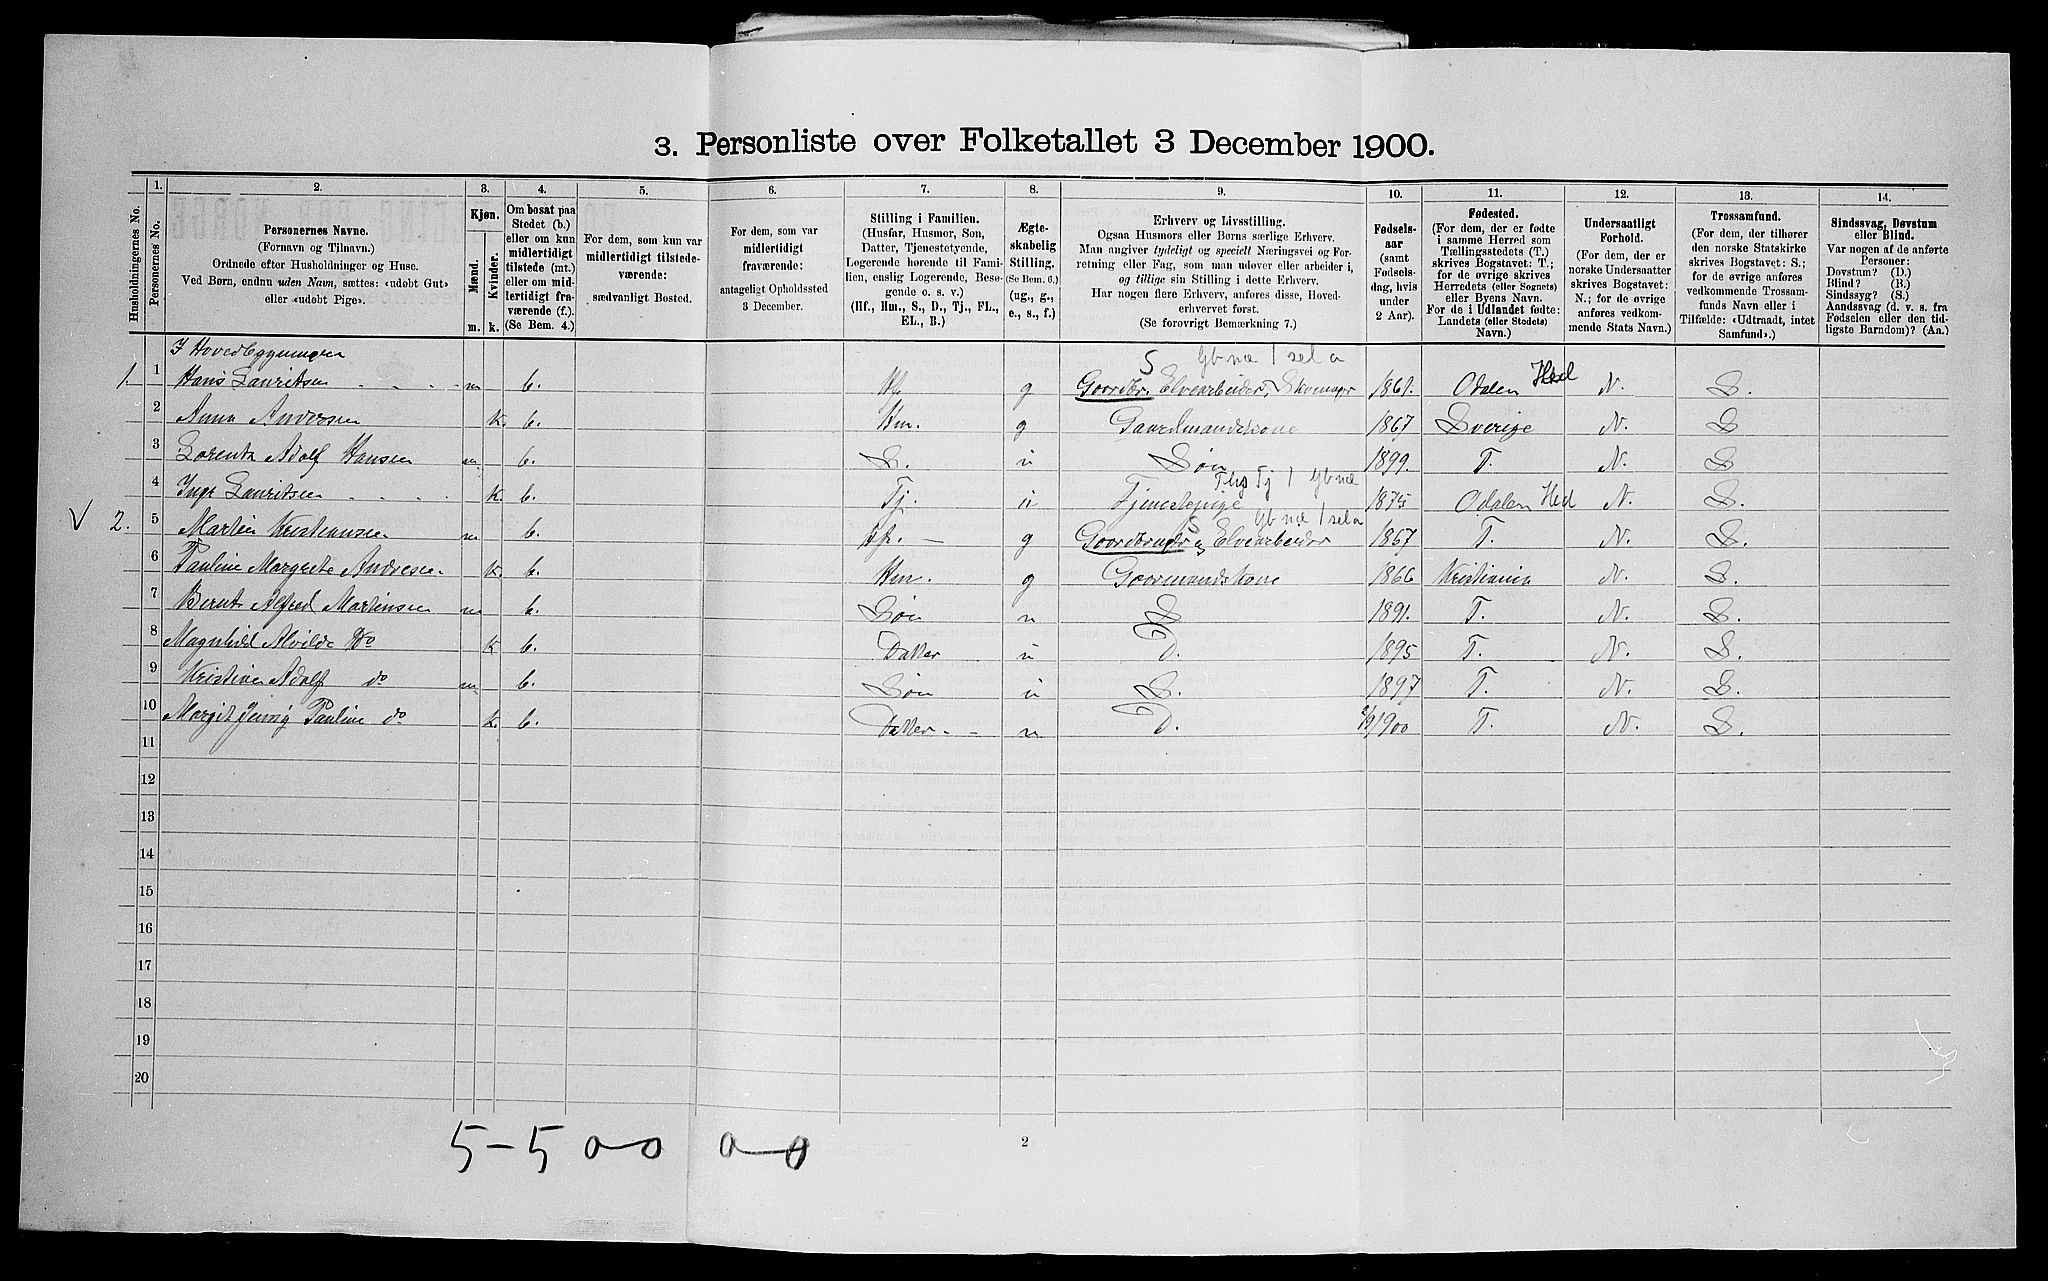 3. Personliste over Folketallet 3 December 1900.
1. 2. 3. 4. 5. 6. 7. 8. 9. 10. 11. 12. 13. 14.
Husholdningernes No.
Personernes No.
Personernes Navne.
(Fornavn og Tilnavn.)
Ordnede efter Husholdninger og Huse.
Ved Børn, endnu uden Navn, sættes: «udøbt Gut»
eller «udøbt Pige».
Kjøn.
Mænd.
Kvinder.
m. k.
Om bosat paa
Stedet (b.)
eller om kun
midlertidigt
tilstede (mt.)
eller om mid-
lertidigt fra-
værende (f.).
(Se Bem. 4.)
For dem, som kun var
midlertidigt tilstede-
værende:
sædvanligt Bosted.
For dem, som var
midlertidigt
fraværende:
antageligt Opholdssted
3 December.
Stilling i Familien.
(Husfar, Husmor, Søn,
Datter, Tjenestetyende,
Logerende hørende til Fami-
lien, enslig Logerende, Besø-
gende o. s. v.)
(Hf., Hm., S., D., Tj., FL.,
EL., B.)
Ægte-
skabelig
Stilling.
(Se Bem. 6.)
(ug., g.,
e., s., f.)
Erhverv og Livsstilling.
Ogsaa Husmors eller Børns særlige Erhverv.
Man angiver tydeligt og specielt Næringsvei og For-
retning eller Fag, som man udøver eller arbeider i,
og tillige sin Stilling i dette Erhverv.
Har nogen flere Erhverv, anføres disse, Hoved-
erhvervet først.
(Se forøvrigt Bemærkning 7.)
Fødsels-
aar
(samt
Fødsels-
dag, hvis
under
2 Aar).
Fødested.
(For dem, der er fødte
i samme Herred som
Tællingsstedets (T.)
skrives Bogstavet: T.;
for de øvrige skrives
Herredets (eller Sognets)
eller Byens Navn.
For de i Udlandet fødte:
Landets (eller Stedets)
Navn.)
Undersaatligt
Forhold.
(For dem, der er
norske Undersaatter
skrives Bogstavet:
N.; for de øvrige
anføres vedkom-
mende Stats Navn.)
Trossamfund.
(For dem, der tilhører
den norske Statskirke
skrives Bogstavet: S.;
for de øvrige anføres
vedkommende Trossam-
funds Navn eller i
Tilfælde: «Udtraadt, intet
Samfund».)
Sindssvag, Døvstum
eller Blind.
Var nogen af de anførte
Personer:
Døvstum? (D.)
Blind? (B.)
Sindssyg? (S.)
Aandssvag (d. v. s. fra
Fødselen eller den tid-
ligste Barndom)? (Aa.)
I Hovedbygningen
5 Gbnæ 1 sela
1. 1 Hans Lauritsen m b. Hf g Gaardbr. Elvearbeider, Skomager 1861. Odalen Hed N. S.
2 Anna Andersen K. b. Hm. g Gaardmandskone 1867 Sverige N. S
3 Lorents Adolf Hansen m b. S. u Søn 1899. T. N. S
Tj 1 Gbnæ
4 Inge Lauritsen K. b. Tj. u Tjenestepige 1875 Odalen Hed N. S.
Gbnæ 1 sela
V 2. 5 Martin Kristiansen m b. Hf. g Gaardbruger og Elvearbeider 1867 T. N. S.
6 Pauline Margrete Andresen K. b. Hm. g Gaarmandskone 1866 Kristiania N. S.
7 Bernt Alfred Martinsen m b. Søn u S 1891. T. N. S.
8 Magnhild Alvilde Do K b. Datter u D. 1895 T. N. S.
9 Kristian Adolf do m b. Søn u S. 1897 T. N. S.
10 Margit Jenny Pauline do K. b. Datter u D. 2/9 1900 T. N. S.
11
12
13
14
15
16
17
18
19
20
5-5 0 0 0 0
2